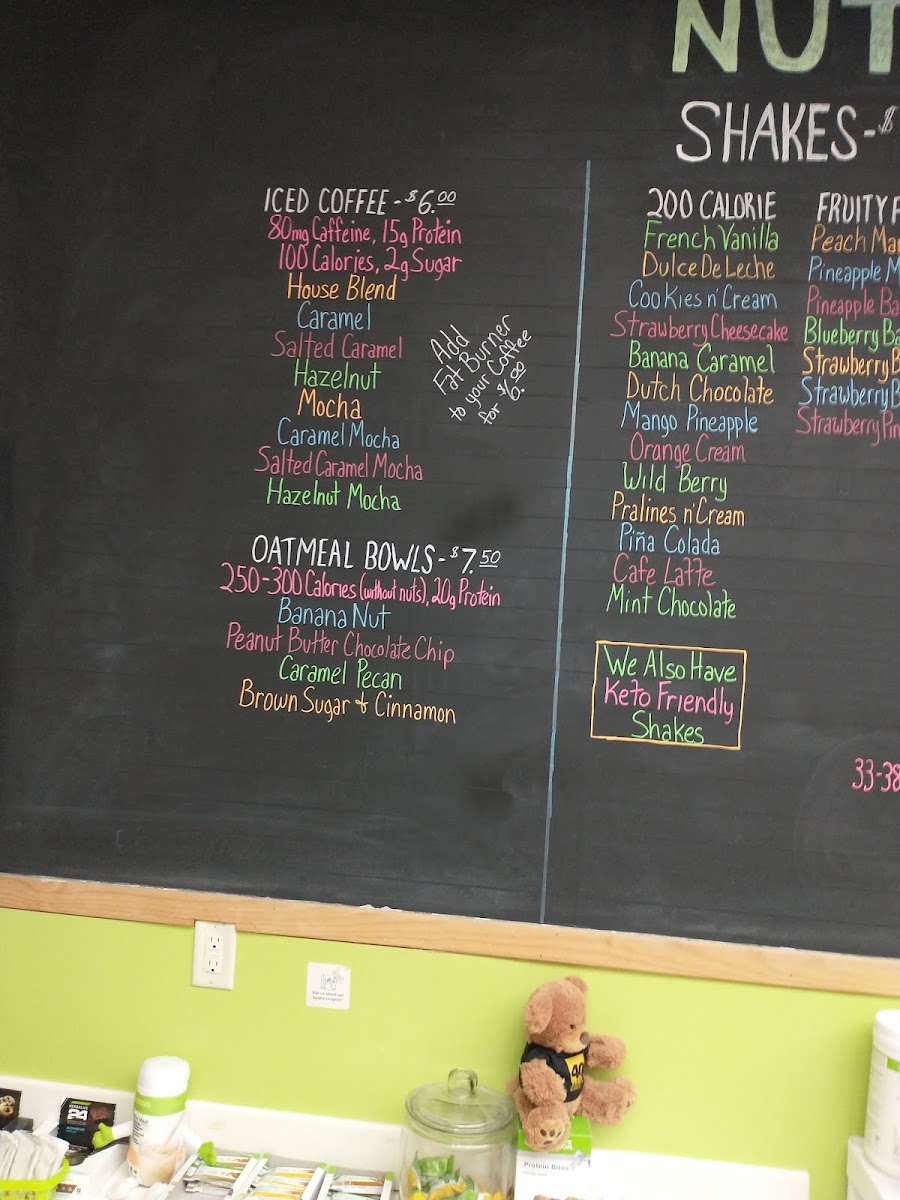 NUT
SHAKES-$
ICED COFFEE-$6.00
80mg Caffeine, 15g Protein
100 Calories, 2g Sugar
House Blend
Caramel
Salted Caramel
Hazelnut
Mocha
Caramel Mocha
Salted Caramel Mocha
Hazelnut Mocha
Add
Fat Burner
to your Coffee
for $6.00
OATMEAL BOWLS-$7.50
250-300 Calories (without nuts), 20g Protein
Banana Nut
Peanut Butter Chocolate Chip
Caramel Pecan
Brown Sugar & Cinnamon
200 CALORIE
French Vanilla
Dulce De Leche
Cookies n' Cream
Strawberry Cheesecake
Banana Caramel
Dutch Chocolate
Mango Pineapple
Orange Cream
Wild Berry
Pralines n' Cream
Piña Colada
Cafe Latte
Mint Chocolate
We Also Have
Keto Friendly
Shakes
FRUITY F
Peach Ma
Pineapple M
Pineapple Ba
Blueberry Ba
Strawberry B
Strawberry B
Strawberry Pin
33-38
24
Protein Bites